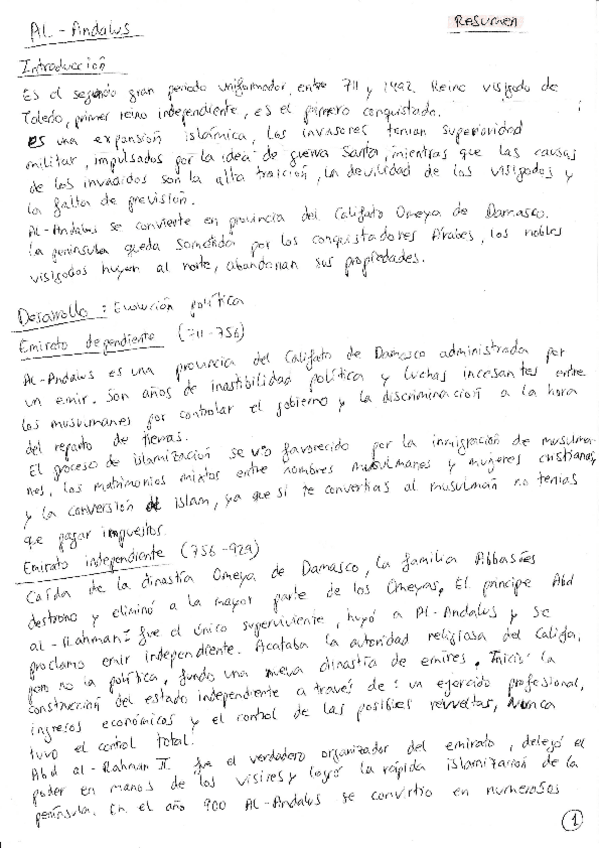 Al-Andalus
RESUMEN
Introducción
Es el segundo gran periodo uniformador, entre 711 y 1492. Reino visigodo de
Toledo, primer reino independiente, es el primero conquistado.
Es una expansión islámica, los invasores tenían superioridad
militar, impulsados por la idea de guerra Santa, mientras que las causas
de los invadidos son la alta traición, la devilidad de los visigodos y
la falta de previsión.
Al-Andalus se convierte en provincia del Califato Omeya de Damasco.
La península queda sometida por los conquistadores Árabes, los nobles
visigodos huyen al norte, abandonan sus propiedades.
Desarrollo: Evolución política
Emirato dependiente (711-756)
Al-Andalus es una provincia del Califato de Damasco administrada por
un emir. Son años de inastibilidad política y luchas incesantes entre
los musulmanes por controlar el gobierno y la discriminación a la hora
del reparto de tierras.
El proceso de islamización se vio favorecido por la inmigración de musulma-
nes, los matrimonios mixtos entre hombres musulmanes y mujeres cristianas,
y la conversión al islam, ya que si te convertias al musulmán no tenias
que pagar impuestos.
Emirato independiente (756-929)
Caída de la dinastía Omeya de Damasco, la familia Abbasíes
destrono y eliminó a la mayor parte de los Omeyas, El principe Abd
al-Rahman I fue el único superviviente, huyó a Al-Andalus y se
proclamo emir independiente. Acataba la autoridad religiosa del Califa,
pero no la política, fundo una nueva dinastía de emires. Inició la
construcción del estado independiente a través de: un ejercido profesional,
ingresos económicos y el control de las posibles revueltas, Nunca
tuvo el control total.
Abd al-Rahman II fue el verdadero organizador del emirato, delegó el
poder en manos de los visires y logró la rápida islamización de la
península. En el año 900 Al-Andalus se convirtio en numerosos
1